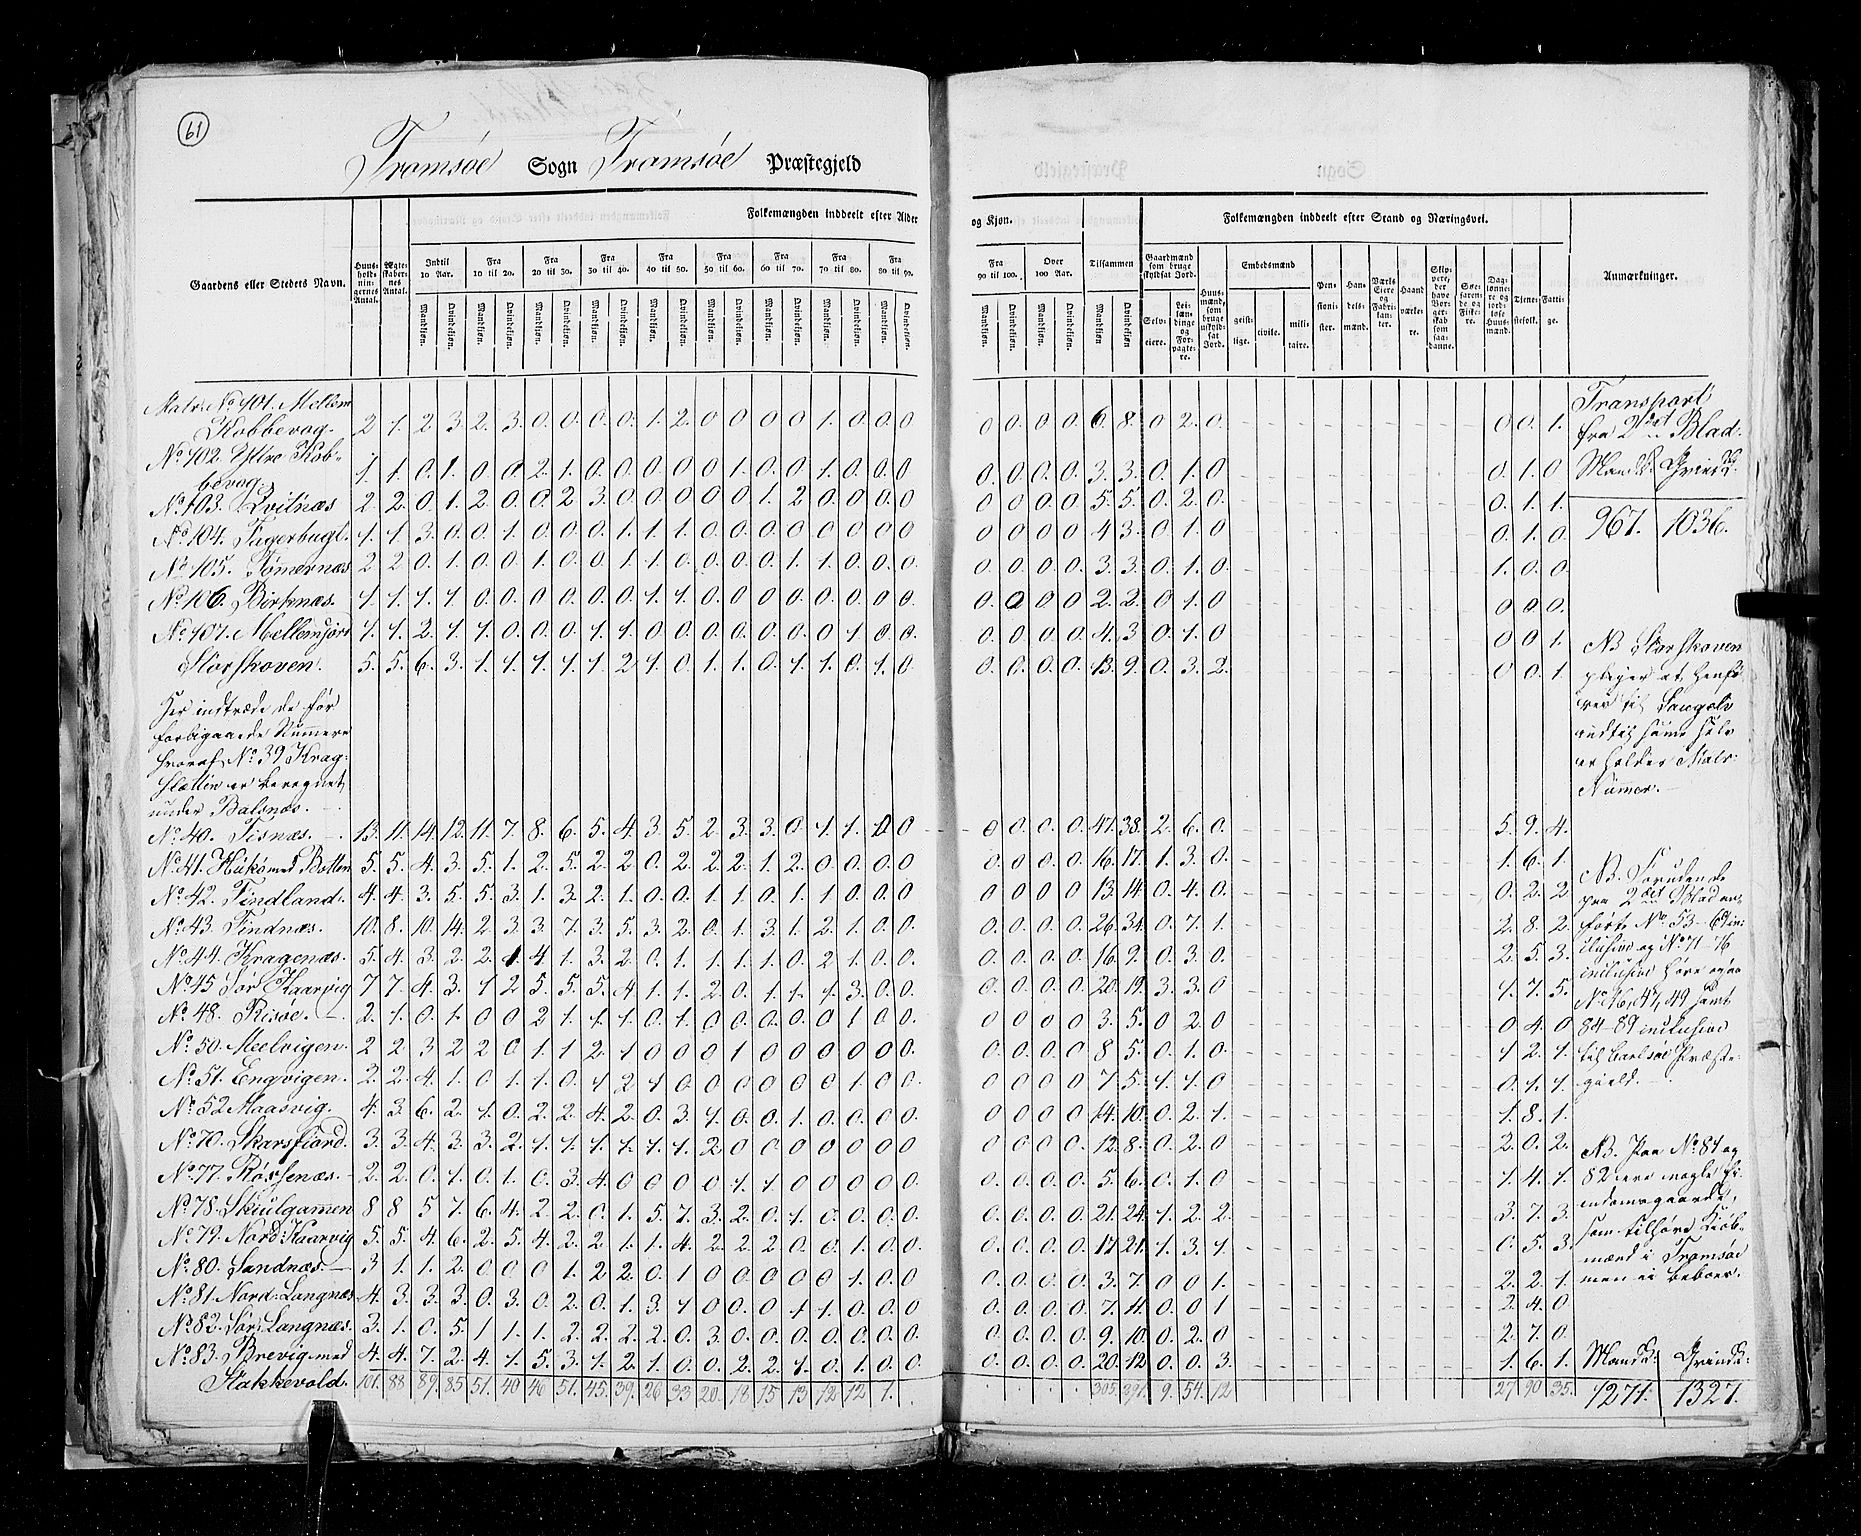 61
Tromsøe Sogn Tromsøe Præstegjeld
Folkemængden inddeelt efter Alder og Kjøn. Folkemængden inddeelt efter Stand og Næringsvei.
Gaardens eller Stedets Navn. Huusholdningernes Antal. Ægteskabernes Antal. Indtil 10 Aar. Fra 10 til 20. Fra 20 til 30. Fra 30 til 40. Fra 40 til 50. Fra 50 til 60. Fra 60 til 70. Fra 70 til 80. Fra 80 til 90. Fra 90 til 100. Over 100 Aar. Tilsammen Gaardmænd som bruge skyldsat Jord. Huusmænd, som bruge uskyldsat Jord. Embedsmænd Pensionister. Handelsmænd. Værks Eiere og Fabrikanter. Haandværkere. Skippere, der have Borgerskab som saadanne. Søefarende og Fiskere. Daglønnere og jordløse Huusmænd. Tjenestefolk. Fattige. Anmærkninger.
Mandkjøn. Qvindekjøn. Selveiere. Leilændinge og Forpagtere. geistlige. civile. militaire.
Matr: No 101. Mellem
Kobbevog. 2 1. 2 3. 2. 3. 0. 0. 0. 0. 1. 2. 0 0 0 0 1. 0. 0. 0 0 0. 0. 0. 6. 8. 0 2. 0. 0 0. 1.
No 102. Yttre Kob-
bevog. 1. 1. 0. 1. 0 0 2. 1. 0 0 0 0 0 1. 0 0. 1. 0. 0. 0 0. 0. 0. 0. 3. 3. 0. 1. 0 0. 1. 0
No 103. Kvitnæs 2. 2. 0 1. 2. 0. 0. 2. 3. 0 0 0 0 0 1. 2. 0. 0. 0. 0 0 0. 0. 0. 5. 5. 0 2. 0. 0. 1. 1.
No 104. Fagerbugt. 1. 1. 3. 0. 0. 1. 0. 0. 0. 1. 1. 1. 0 0 0 0 0. 0. 0. 0. 0 0 0 0 4 3. 0. 1. 0 0. 1. 0.
No 105. Tømernæs 2 2 0. 1. 0. 0 1. 0 0. 1. 1. 0. 0. 0. 1. 1. 0. 0. 0. 0. 0. 0. 0. 0. 3. 3. 0. 1. 0. 1. 0. 0.
No 106. Birknæs. 1. 1. 1. 1. 0. 0. 0. 0. 0. 0. 1. 1. 0. 0. 0. 0. 0. 0. 0. 0. 0. 0 0. 0 2. 2. 0 1. 0 0 0 0.
No 107. Mellemjord 1. 1. 2. 1. 1. 0. 0. 0. 1. 1. 0. 0. 0. 0. 0. 0. 0 1. 0. 0. 0 0 0. 0. 4. 3 0. 1. 0 0 0 1.
Storskoven. 5. 5. 6. 3. 1. 1. 1. 1. 1. 2 1. 0. 1. 1. 0. 1. 1. 0. 1. 0 0. 0. 0. 0. 13. 9. 0. 3. 2. 0 0. 1.
Her indtræde de før
forbigaaede Nummere
hvoraf No 39 Krag-
slætten er beregnet
under Balsnæs.
No 40. Tisnæs. 13. 11. 14. 12. 11. 7. 8. 6. 5. 4. 3. 5. 2. 3. 3. 0. 1. 1. 0 0 0 0. 0. 0. 47. 38. 2. 6. 0. 5. 9. 4.
No 41. Hækø med Botten 5. 5. 4. 3. 5. 1. 2. 5. 2. 2. 0. 2. 2 2. 1. 2. 0 0. 0. 0 0. 0. 0. 0. 16. 17. 1. 3. 0. 1. 6. 1.
No 42. Findland. 4. 4. 3. 5. 5. 3. 1. 3. 2. 1. 0. 0. 1. 1. 0. 1. 1. 0. 0. 0 0 0 0 0 13. 14. 0. 4. 0. 0. 2. 2
No 43. Findnæs. 10. 8. 10. 14. 2. 3. 3. 7. 3. 5. 3. 2. 0. 1. 3. 1. 2. 1. 0. 0 0. 0. 0. 0. 26. 34. 0. 7. 1. 2. 8. 2.
No 44. Kragenæs. 5. 4. 3. 2. 2. 1. 4. 1. 3. 2. 0. 1. 1. 1. 1. 0. 2. 1. 0. 0. 0. 0. 0. 0. 16. 9. 0. 3. 0. 2. 5. 3.
No 45 Sør Kaarvig 7 7. 4. 3. 1 2 5. 5. 5. 4. 1. 1. 2. 0. 1. 1. 1. 3. 0. 0 0. 0. 0. 0. 20. 19. 3. 3. 0 1. 7. 5.
No 48. Risøe. 2. 1. 0. 1. 0 0 2 1. 1. 1. 0. 1. 0. 0. 0. 0. 0 1 0 0. 0 0 0 0 3. 5. 0 2. 0 0 4. 0
No 50. Meelvigen. 2 2. 3 2 2 0. 1. 1. 2. 1 0 0 0 1 0 0 0 0 0 0. 0. 0. 0 0. 8 5. 0. 1. 0. 1 2. 1.
No 51. Engvigen. 2. 2. 4. 1. 0 1. 1. 0. 1 2 1 0 0 0 0 0. 0 1. 0. 0. 0 0 0 0. 7 5. 1. 1. 0 0. 1. 1.
No 52 Maasvig. 4. 3. 6. 2. 1. 0. 2. 2. 4. 2. 0. 3. 1. 0. 0 1. 0 0. 0. 0 0 0 0 0 14. 10. 0. 2. 1. 1. 8. 1.
No 70. Skarsfiord. 3. 3. 4. 3. 3. 2. 1. 1. 1. 1. 1. 1. 2 0 0 0. 0. 0 0 0 0 0 0 0. 12. 8. 0. 2. 0 2. 0. 2.
No 77. Røssenæs. 2. 2. 0. 1. 0. 1. 0 3. 4. 0 0 0 0 1. 1. 0 0 0 0. 0. 0 0. 0. 0. 5. 6. 0. 1. 0 1. 4. 1
No 78. Skulgamen 8 8 5 7. 6. 4. 2 2. 0. 1. 5. 7. 3. 2. 0. 1. 0. 0. 0. 0 0. 0. 0. 0. 21. 24. 1. 2. 2. 3. 7. 3.
No 79. Nord: Kaarvig 5. 5. 4. 6. 2. 5. 4. 2. 2 1. 1. 4. 2. 2. 2. 0. 0. 1. 0. 0. 0. 0. 0. 0. 17. 21. 1. 3. 1. 0. 5. 3.
No 80. Sandnæs. 3 1. 1. 2. 0 0 0 1. 2 2. 0. 1 0 0 0. 0. 0 1. 0. 0 0. 0. 0. 0. 3. 7. 0 0 1. 2. 2. 1.
No 81. Nord: Langnæs 4. 3. 3. 3. 0. 3. 0. 2. 0. 1. 3. 1 0 0. 0 1. 1. 0. 0. 0 0. 0. 0. 0. 7. 4. 0. 0 1 2. 4. 0
No 82. Sør: Langnæs. 3. 1. 0. 5. 1 1. 1. 2. 2. 2. 2. 0. 3. 0. 0. 0. 0. 0. 0. 0. 0. 0. 0. 0. 9. 10. 0. 2. 0 2. 7. 0.
No 83. Brevig med 4. 4. 7. 2. 4. 1. 5. 3. 1. 2. 1. 0. 0. 2. 2. 1. 0. 1. 0. 0. 0. 0. 0. 0. 20. 12 0. 0. 3. 1. 6. 1.
Stakkevold. 101. 88 89. 85. 51. 40 46 51. 45. 39. 26 33. 20. 18 15. 13. 12 12 1. 305. 291. 9. 54. 12 27 90 35.
Transport
fra 2det Blad.
Mandk. Qvindk.
967. 1036.
NB Storskoven
pleier at henfø
res til Laugslv
indtil same selv
erholder Matr:
Nummer.
NB. Foruden de
paa 2det Blad an-
førte No 53-69 in-
clusive og No 71-76
inclusive høre ogsaa
No 46, 47, 49 samt
84-89 inclusive
til Carlsøe Præste-
gjæld.
NB. Paa No 81 og
82 ere nogle Ei-
endomsgaarde,
som tilhøre Kiøb-
mænd i Tromsøe
men ei beboes.
Mandk: Qvindk:
1271. 1327.